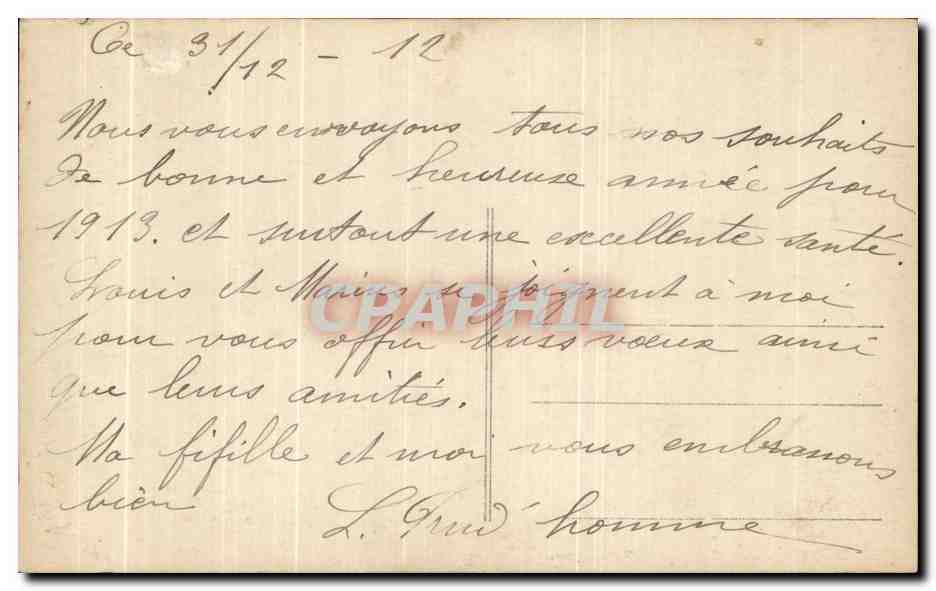 Ce 31/12 - 12
Nous vous envoyons tous nos souhaits
de bonne et heureuse année pour
1913. et surtout une excellente santé.
Louis et Marius se joignent à moi
CPAPHIL
pour vous offrir leurs vœux ainsi
que leurs amitiés.
Ma fifille et moi vous embrassons
bien
L. Prud'homme